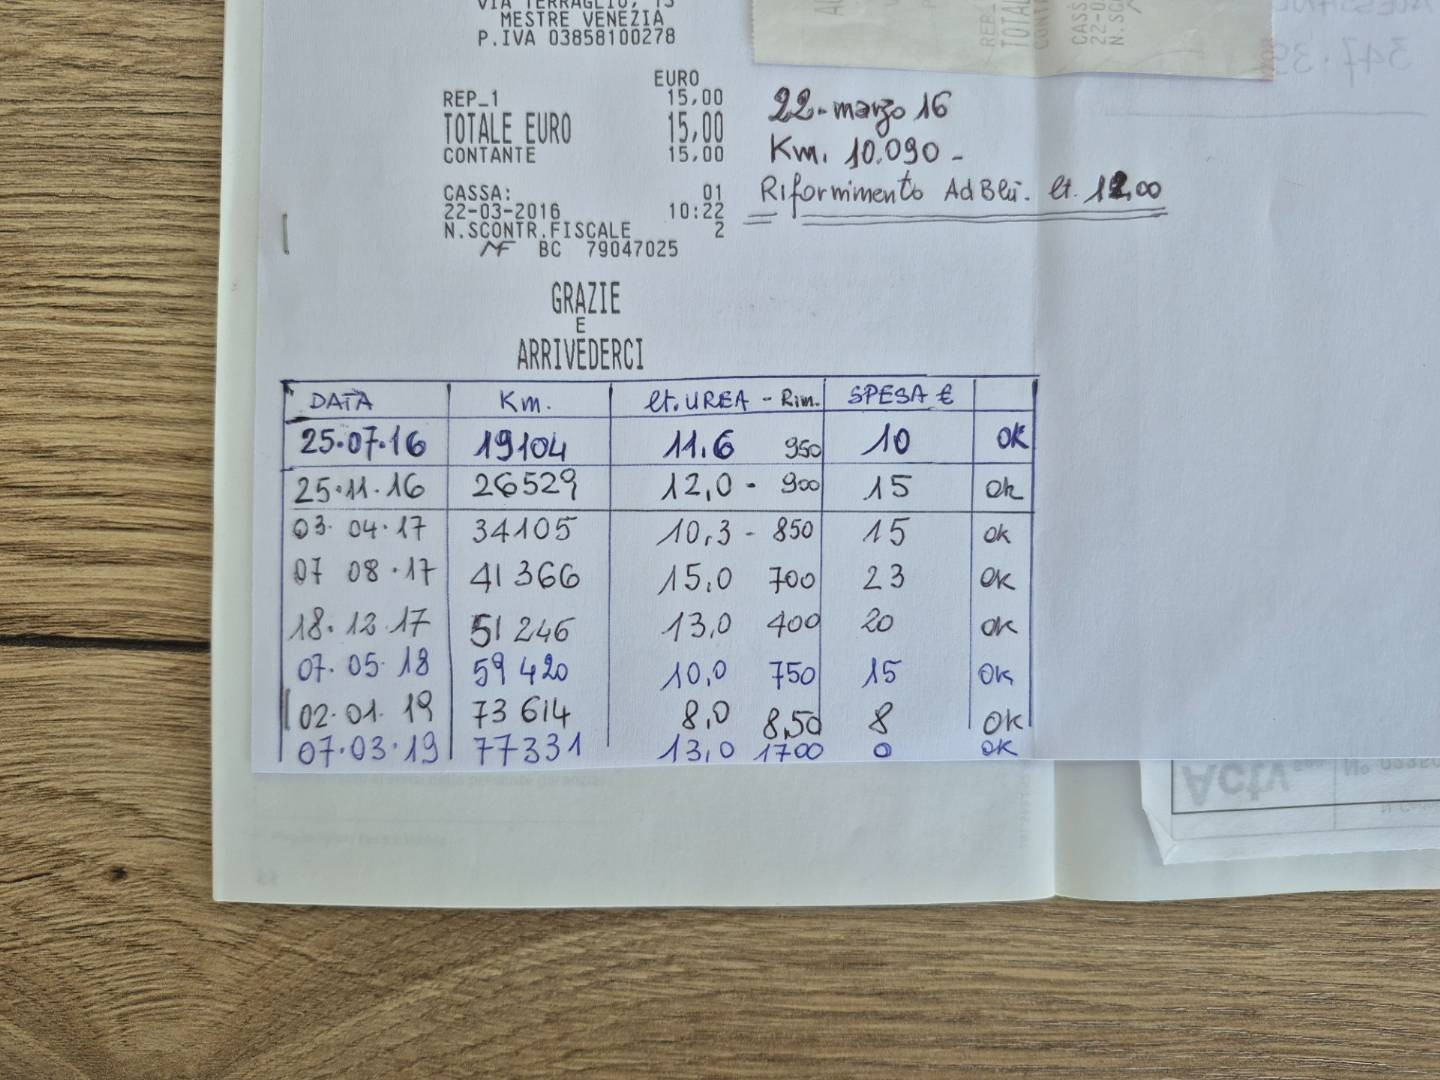 VIA TERRAGLIO, 13
MESTRE VENEZIA
P.IVA 03858100278
EURO
REP_1 15,00
TOTALE EURO 15,00
CONTANTE 15,00
CASSA: 01
22-03-2016 10:22
N.SCONTR.FISCALE 2
MF BC 79047025
GRAZIE
E
ARRIVEDERCI
22-marzo 16
Km. 10.090-
Rifornimento AdBlü. lt. 12,00
DATA Km. lt. UREA - Rim. SPESA €
25.07.16 19104 11.6 950 10 OK
25.11.16 26529 12,0 - 900 15 OK
03.04.17 34105 10,3 - 850 15 OK
07 08.17 41366 15,0 700 23 OK
18.12.17 51246 13,0 400 20 OK
07.05.18 59420 10,0 750 15 OK
02.01.19 73614 8,0 8,50 8 OK
07.03.19 77331 13,0 1700 0 OK
REP_
TOTALE
CASSA
22-0
N.SC
347.39
Actv